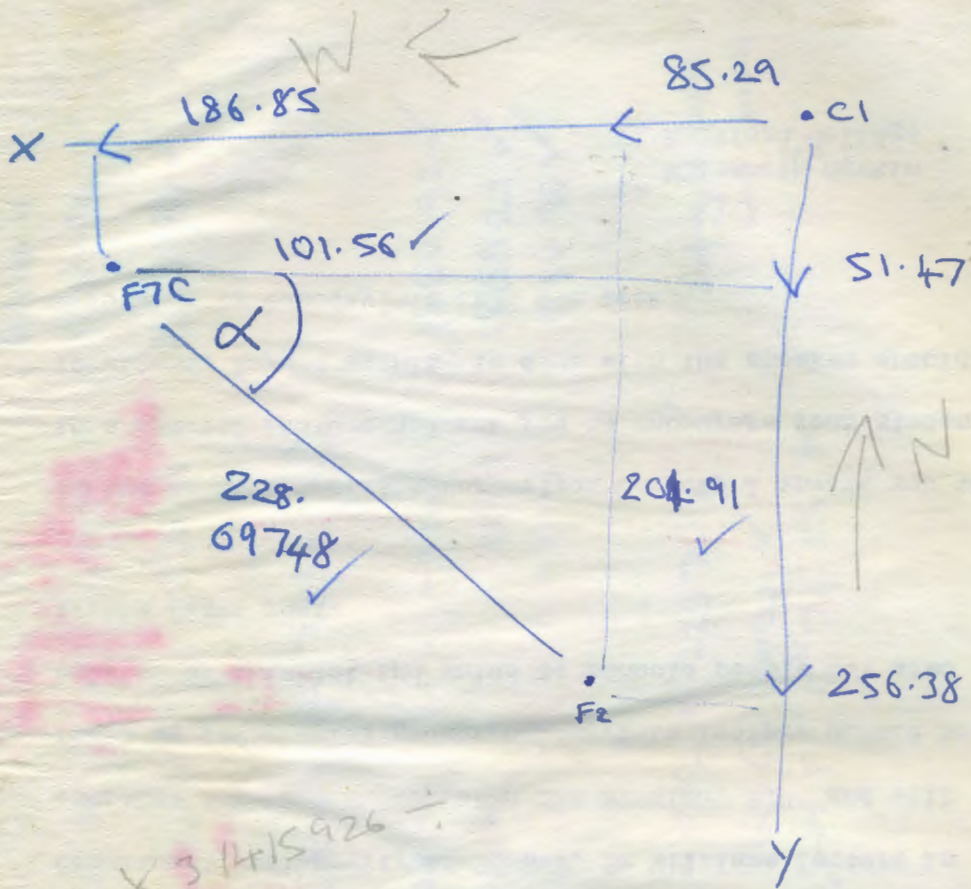 W
85.29
186.85
C1
X
101.56
51.47
F7C
α
N
228.
69748
204.91
256.38
F2
x 3.1415926 ÷
Y